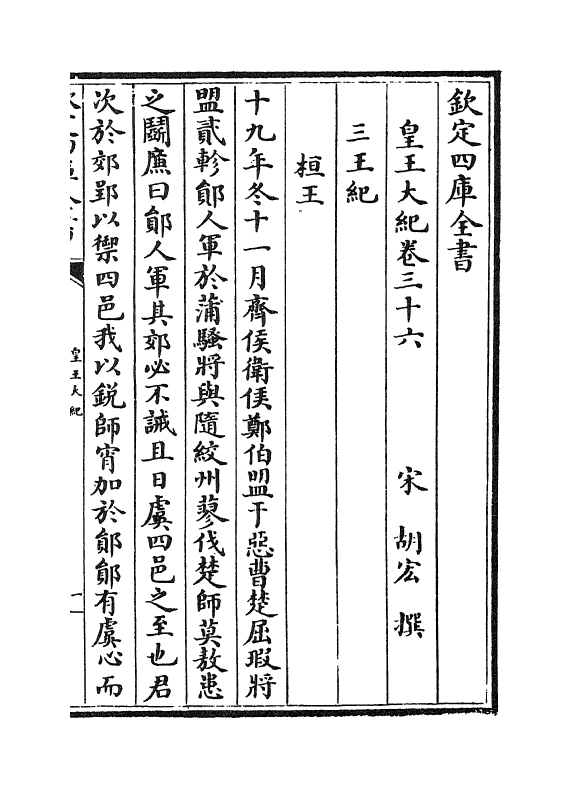 欽定四庫全書
皇王大紀卷三十六
宋 胡宏 撰
三王紀
桓王
十九年冬十一月齊侯衛侯鄭伯盟于惡曹楚屈瑕將
盟貳軫鄖人軍於蒲騷將與隨絞州蓼伐楚師莫敖患
之鬭廉曰鄖人軍其郊必不誡且日虞四邑之至也君
次於郊郢以禦四邑我以鋭師宵加於鄖鄖有虞心而
皇王大紀
一